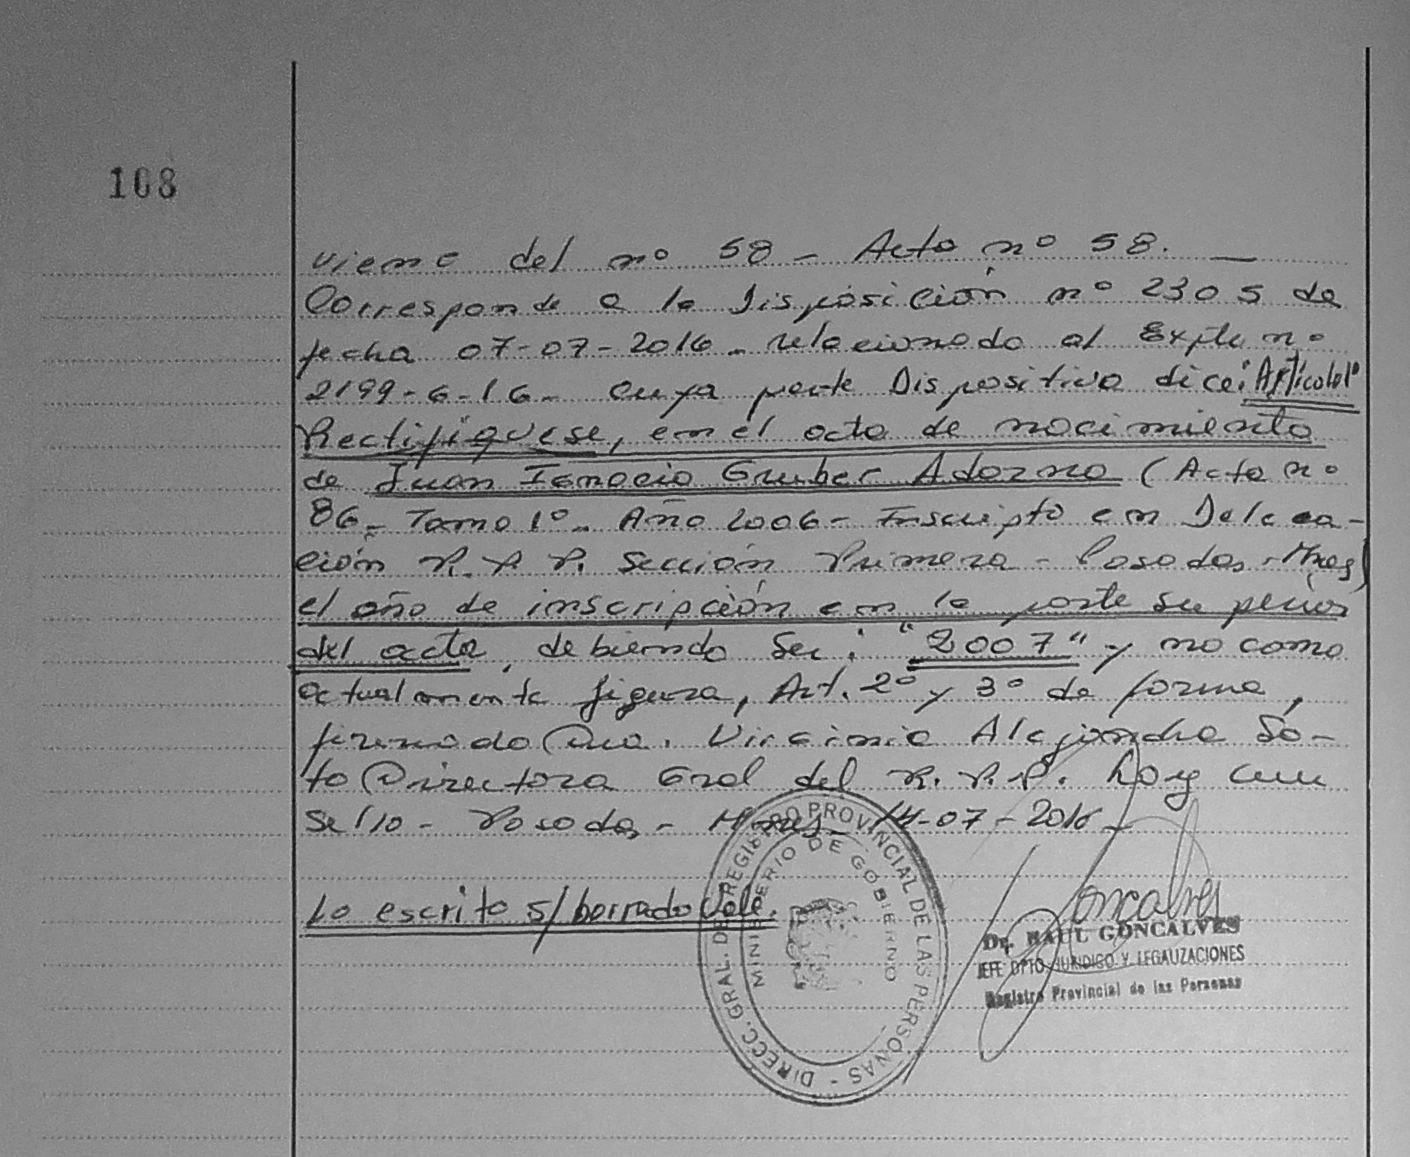 108
viene del nº 58 - Acta nº 58. —
Corresponde a la Disposición nº 2305 de
fecha 07-07-2016 - relacionado al Expte nº
2199-G-16 - cuya parte Dispositiva dice: "Artículo 1º
Rectifíquese, en el acta de nacimiento
de Juan Ignacio Gruber Adorno (Acta nº
86 - Tomo 1º - Año 2006 - Inscripto en Delega-
ción R.P.P. Sección Primera - Posadas - Mnes)
el año de inscripción en la parte superior
del acta, debiendo ser: "2007" y no como
actualmente figura, Art. 2º y 3º de forma,
firmado Dra. Virginia Alejandra So-
to Directora Gral del R.P.P. hay un
sello - Posadas - Mnes - 14-07-2016 -
Lo escrito s/ borrado Vale.
DIRECC. GRAL. DE REGISTRO PROVINCIAL DE LAS PERSONAS -
MINISTERIO DE GOBIERNO
Goncalves
Dr. RAUL GONCALVES
JEFE DPTO. JURIDICO Y LEGALIZACIONES
Registro Provincial de las Personas